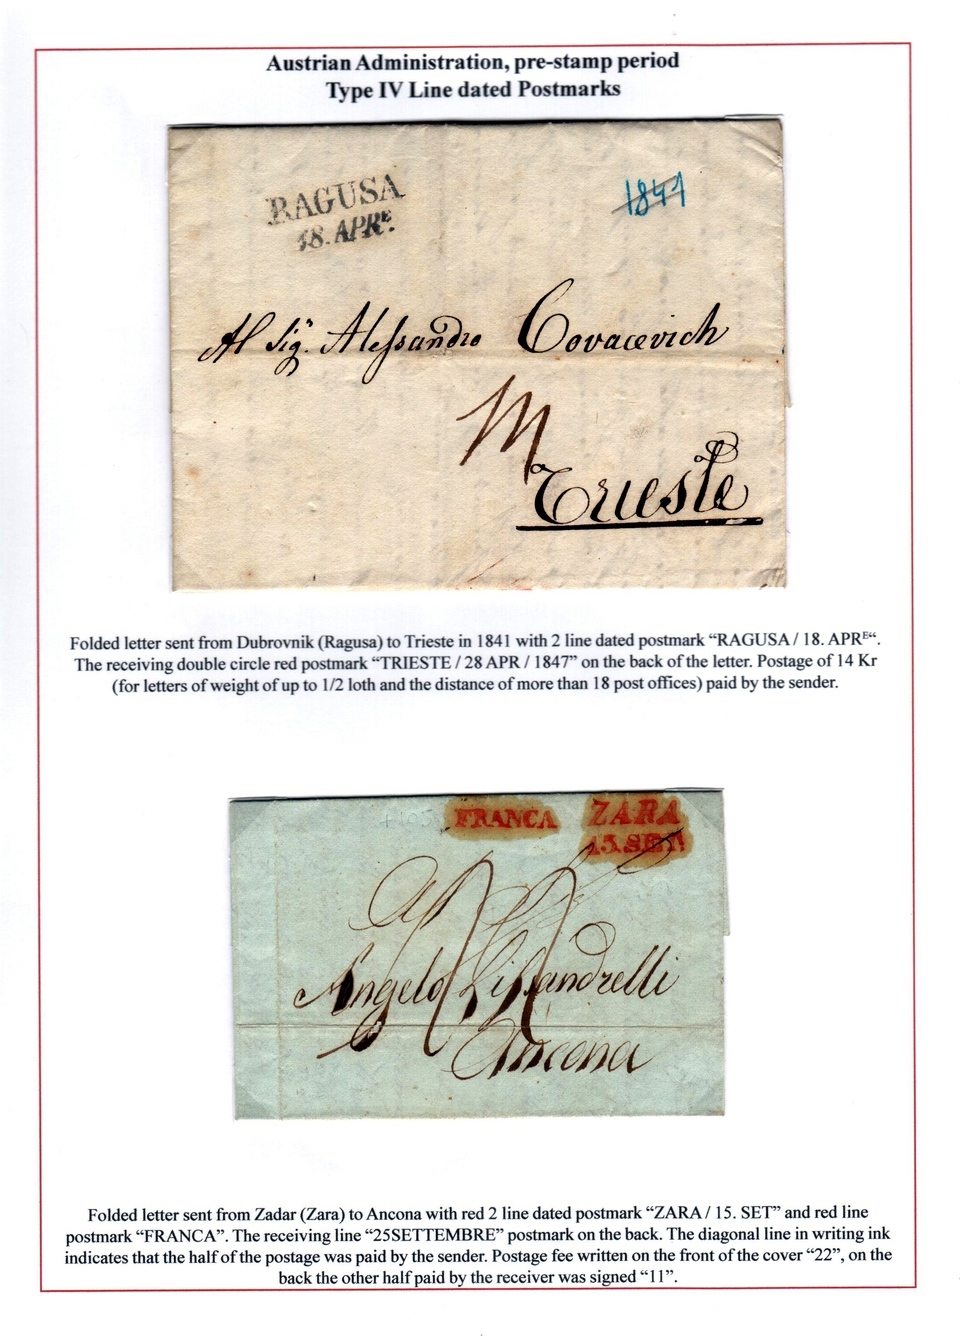 Austrian Administration, pre-stamp period
Type IV Line dated Postmarks
RAGUSA
18. APRᴱ.
1841
Al Sig.r Alessandro Covacevich
Trieste
Folded letter sent from Dubrovnik (Ragusa) to Trieste in 1841 with 2 line dated postmark “RAGUSA / 18. APRᴱ“.
The receiving double circle red postmark “TRIESTE / 28 APR / 1847” on the back of the letter. Postage of 14 Kr
(for letters of weight of up to 1/2 loth and the distance of more than 18 post offices) paid by the sender.
FRANCA
ZARA
15. SET.
A
Angelo Lissandrelli
Ancona
Folded letter sent from Zadar (Zara) to Ancona with red 2 line dated postmark “ZARA / 15. SET” and red line
postmark “FRANCA”. The receiving line “25SETTEMBRE” postmark on the back. The diagonal line in writing ink
indicates that the half of the postage was paid by the sender. Postage fee written on the front of the cover “22”, on the
back the other half paid by the receiver was signed “11”.